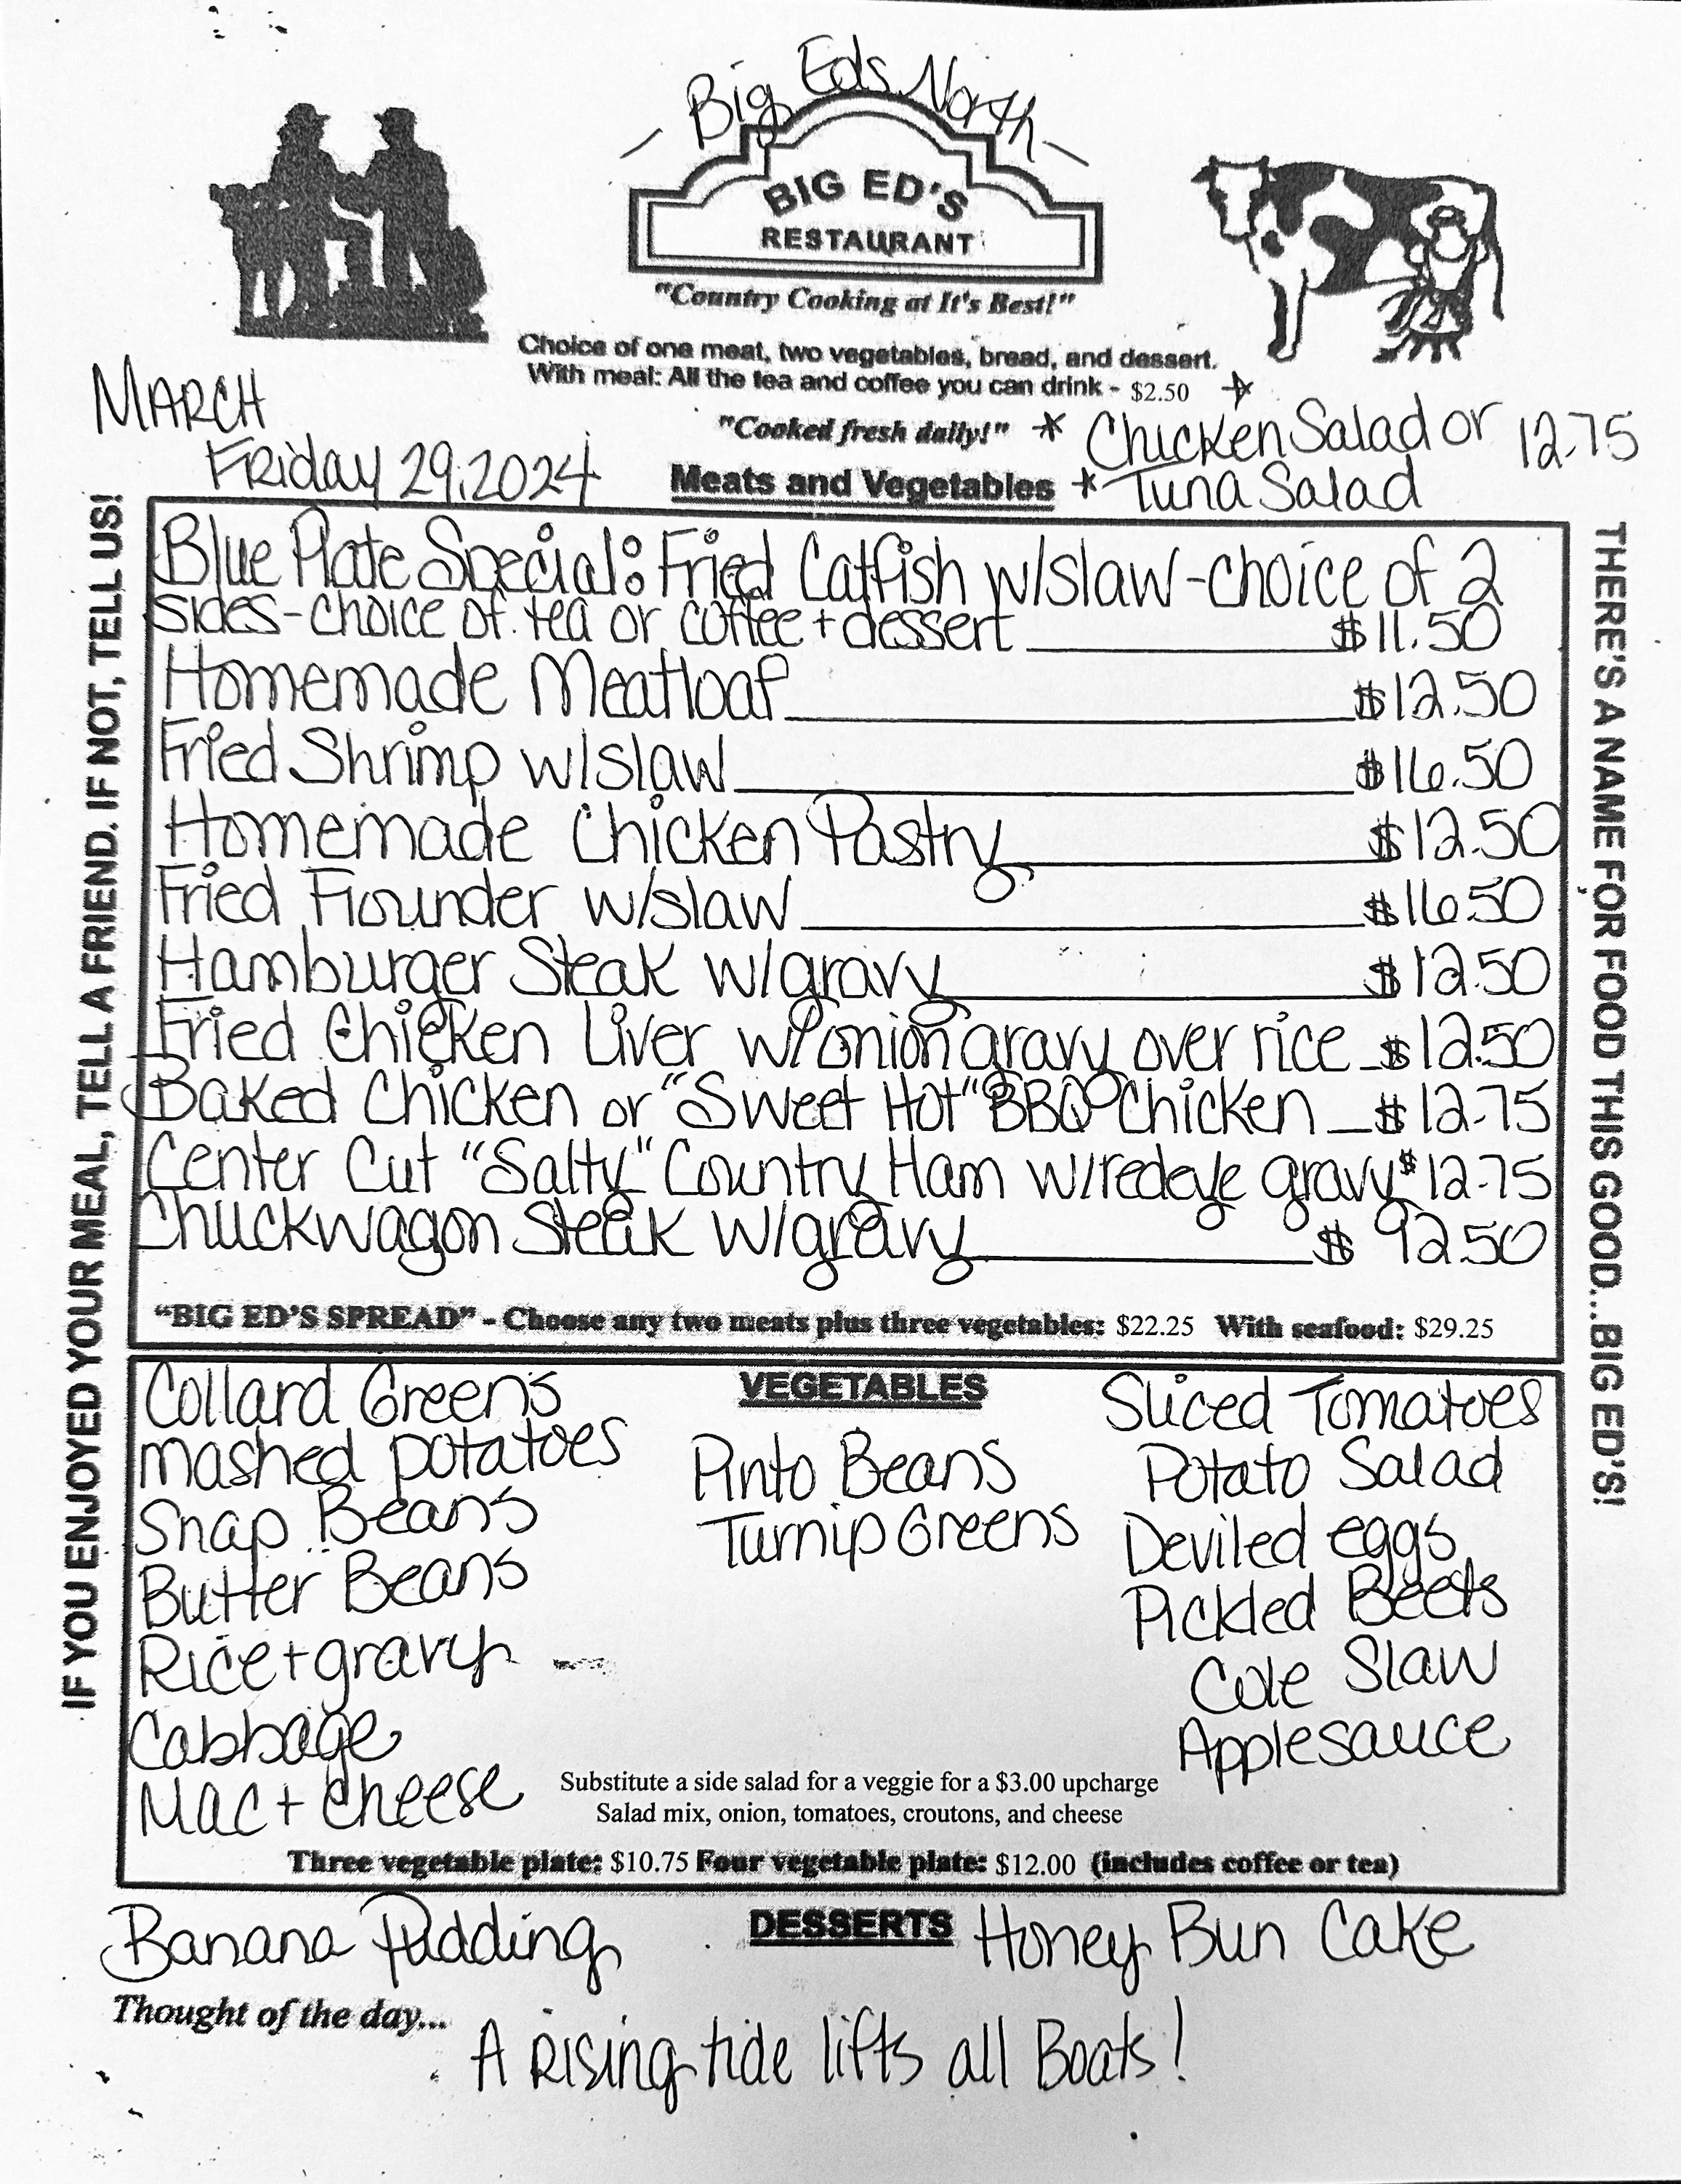 - Big Eds North -
BIG ED'S
RESTAURANT
"Country Cooking at It's Best!"
Choice of one meat, two vegetables, bread, and dessert.
With meal: All the tea and coffee you can drink - $2.50
MARCH
Friday 29, 2024
"Cooked fresh daily!"
* Chicken Salad or 12.75
* Tuna Salad
Meats and Vegetables
IF YOU ENJOYED YOUR MEAL, TELL A FRIEND. IF NOT, TELL US!
Blue Plate Special: Fried Catfish w/slaw - choice of 2
sides - choice of tea or coffee + dessert $11.50
Homemade Meatloaf $12.50
Fried Shrimp w/slaw $16.50
Homemade Chicken Pastry $12.50
Fried Flounder w/slaw $16.50
Hamburger Steak w/gravy $12.50
Fried Chicken Liver w/onion gravy over rice $12.50
Baked Chicken or "Sweet Hot" BBQ Chicken $12.75
Center Cut "Salty" Country Ham w/redeye gravy $12.75
Chuckwagon Steak w/gravy $92.50
"BIG ED'S SPREAD" - Choose any two meats plus three vegetables: $22.25 With seafood: $29.25
THERE'S A NAME FOR FOOD THIS GOOD...BIG ED'S!
VEGETABLES
Collard Greens
Mashed potatoes
Snap Beans
Butter Beans
Rice + gravy
Cabbage
Mac + Cheese
Pinto Beans
Turnip Greens
Sliced Tomatoes
Potato Salad
Deviled eggs
Pickled Beets
Cole Slaw
Applesauce
Substitute a side salad for a veggie for a $3.00 upcharge
Salad mix, onion, tomatoes, croutons, and cheese
Three vegetable plate: $10.75 Four vegetable plate: $12.00 (includes coffee or tea)
DESSERTS
Banana Pudding
Honey Bun Cake
Thought of the day...
A Rising tide lifts all Boats!